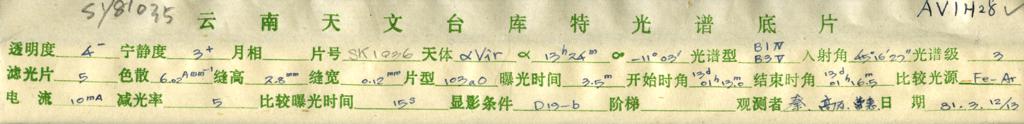 SY81035 AV1H28
云南天文台库特光谱底片
透明度 4⁻ 宁静度 3⁺ 月相 片号 SK1036 天体 αVir α 13ʰ24ᵐ ∞ -11°03′ 光谱型 B1Ⅳ B3Ⅴ 入射角 45°16′23″ 光谱级 3
滤光片 5 色散 6.02Amm⁻¹ 缝高 2.8ᵐᵐ 缝宽 0.12ᵐᵐ 片型 103aO 曝光时间 3.5ᵐ 开始时角 01ʰ13.0ᵐ 结束时角 01ʰ16.5ᵐ 比较光源 Fe-Ar
电流 10mA 减光率 5 比较曝光时间 15ˢ 显影条件 D19-b 阶梯 观测者 秦. 日期 81.3.12/13